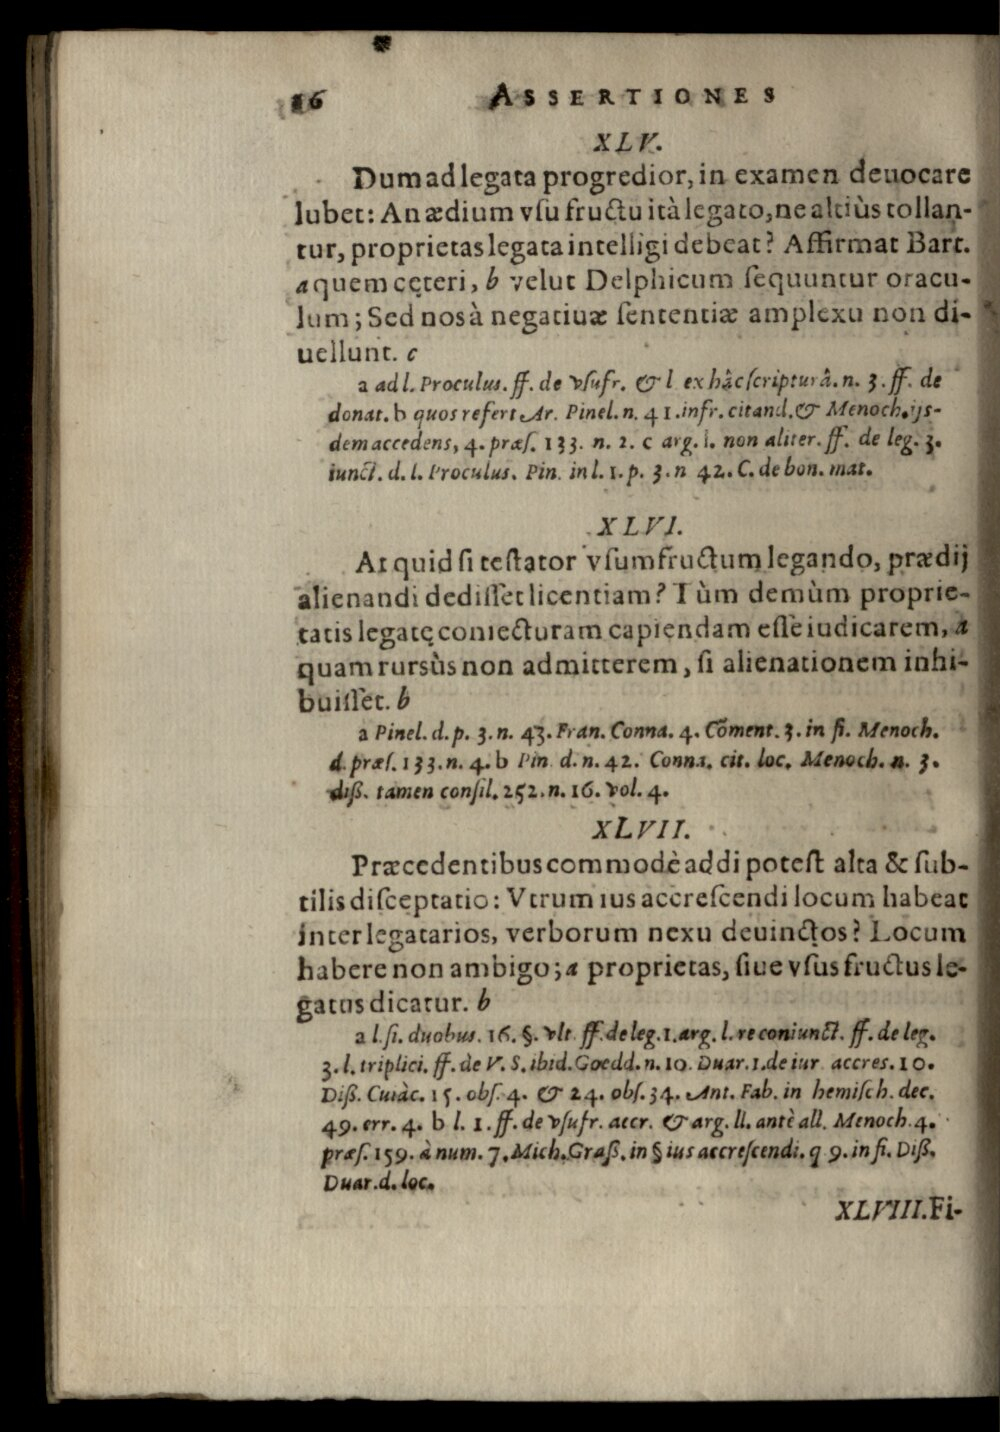 16 ASSERTIONES
XLV.
Dum ad legata progredior, in examen deuocare
lubet: An ædium vſu fructu ità legato, ne altiùs tollan-
tur, proprietas legata intelligi debeat? Affirmat Bart.
a quem cęteri, b velut Delphicum ſequuntur oracu-
lum; Sed nos à negatiuæ ſententiæ amplexu non di-
uellunt. c
a ad l. Proculus. ff. de vſufr. & l ex hâc ſcripturâ. n. 3. ff. de
donat. b quos refert Ar. Pinel. n. 41. infr. citand. & Menoch. ijs-
dem accedens, 4. præſ. 133. n. 2. c arg. l. non aliter. ff. de leg. 3.
iunct. d. l. Proculus. Pin. in l. 1. p. 3. n 42. C. de bon. mat.
XLVI.
At quid ſi teſtator vſumfructum legando, prædij
alienandi dediſſet licentiam? Tùm demùm proprie-
tatis legatę coniecturam capiendam eſſe iudicarem, a
quam rursùs non admitterem, ſi alienationem inhi-
buiſſet. b
a Pinel. d. p. 3. n. 43. Fran. Conna. 4. Cõment. 3. in fi. Menoch.
d. præſ. 133. n. 4. b Pin. d. n. 42. Conna. cit. loc. Menoch. n. 3.
diß. tamen conſil. 252. n. 16. vol. 4.
XLVII.
Præcedentibus commodè addi poteſt alta & ſub-
tilis diſceptatio: Vtrum ius accreſcendi locum habeat
inter legatarios, verborum nexu deuinctos? Locum
habere non ambigo; a proprietas, ſiue vſusfructus le-
gatus dicatur. b
a l. ſi. duobus. 16. §. vlt. ff. de leg. 1. arg. l. re coniunct. ff. de leg.
3. l. triplici. ff. de V. S. ibid. Goedd. n. 10. Duar. 1. de iur accres. 10.
Diß. Cuiàc. 15. obſ. 4. & 24. obſ. 34. Ant. Fab. in hemiſch. dec.
49. err. 4. b l. 1. ff. de vſufr. accr. & arg. ll. antè all. Menoch. 4.
præſ. 159. à num. 7. Mich. Graß. in § ius accreſcendi. q 9. in fi. Diß.
Duar. d. loc.
XLVIII. Fi-